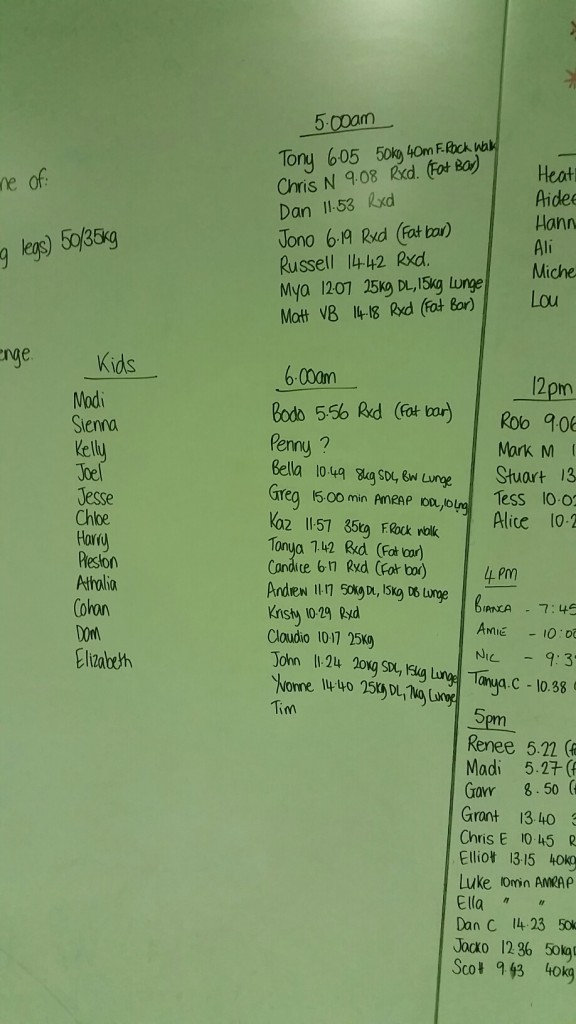 ne of:
g legs) 50/35kg
enge.
Kids
Madi
Sienna
Kelly
Joel
Jesse
Chloe
Harry
Preston
Athalia
Cohan
Dom
Elizabeth
5:00am
Tony 6.05 50kg 40m F.Rack Walk
Chris N 9.08 Rxd. (Fat Bar)
Dan 11.53 Rxd
Jono 6.19 Rxd (Fat bar)
Russell 14.42 Rxd.
Mya 12.07 25kg DL, 15kg Lunge
Matt VB 14.18 Rxd (Fat Bar)
6.00am
Bodo 5.56 Rxd (Fat bar)
Penny ?
Bella 10.49 8kg SDL, BW Lunge
Greg 15.00 min AMRAP 10DL, 10Lng
Kaz 11.57 35kg F.Rack walk
Tanya 7.42 Rxd (Fat bar)
Candice 6.17 Rxd (Fat bar)
Andrew 11.17 50kg DL, 15kg DB Lunge
Kristy 10.29 Rxd
Claudio 10.17 25kg
John 11.24 20kg SDL, 15kg Lunge
Yvonne 14.40 25kg DL, 7kg Lunge
Tim
Heat
Aidee
Hann
Ali
Miche
Lou
12pm
Rob 9.06
Mark M 1
Stuart 13
Tess 10.02
Alice 10.2
4PM
BIANCA - 7:45
AMIE - 10:00
NIC - 9:3
Tanya.C - 10.38
5pm
Renee 5.22 (f
Madi 5.27 (f
Garr 8.50 (
Grant 13.40 3
Chris E 10.45 R
Elliott 13.15 40kg
Luke 10min AMRAP
Ella " "
Dan C 14.23 50k
Jacko 12.36 50kg
Scott 9.43 40kg